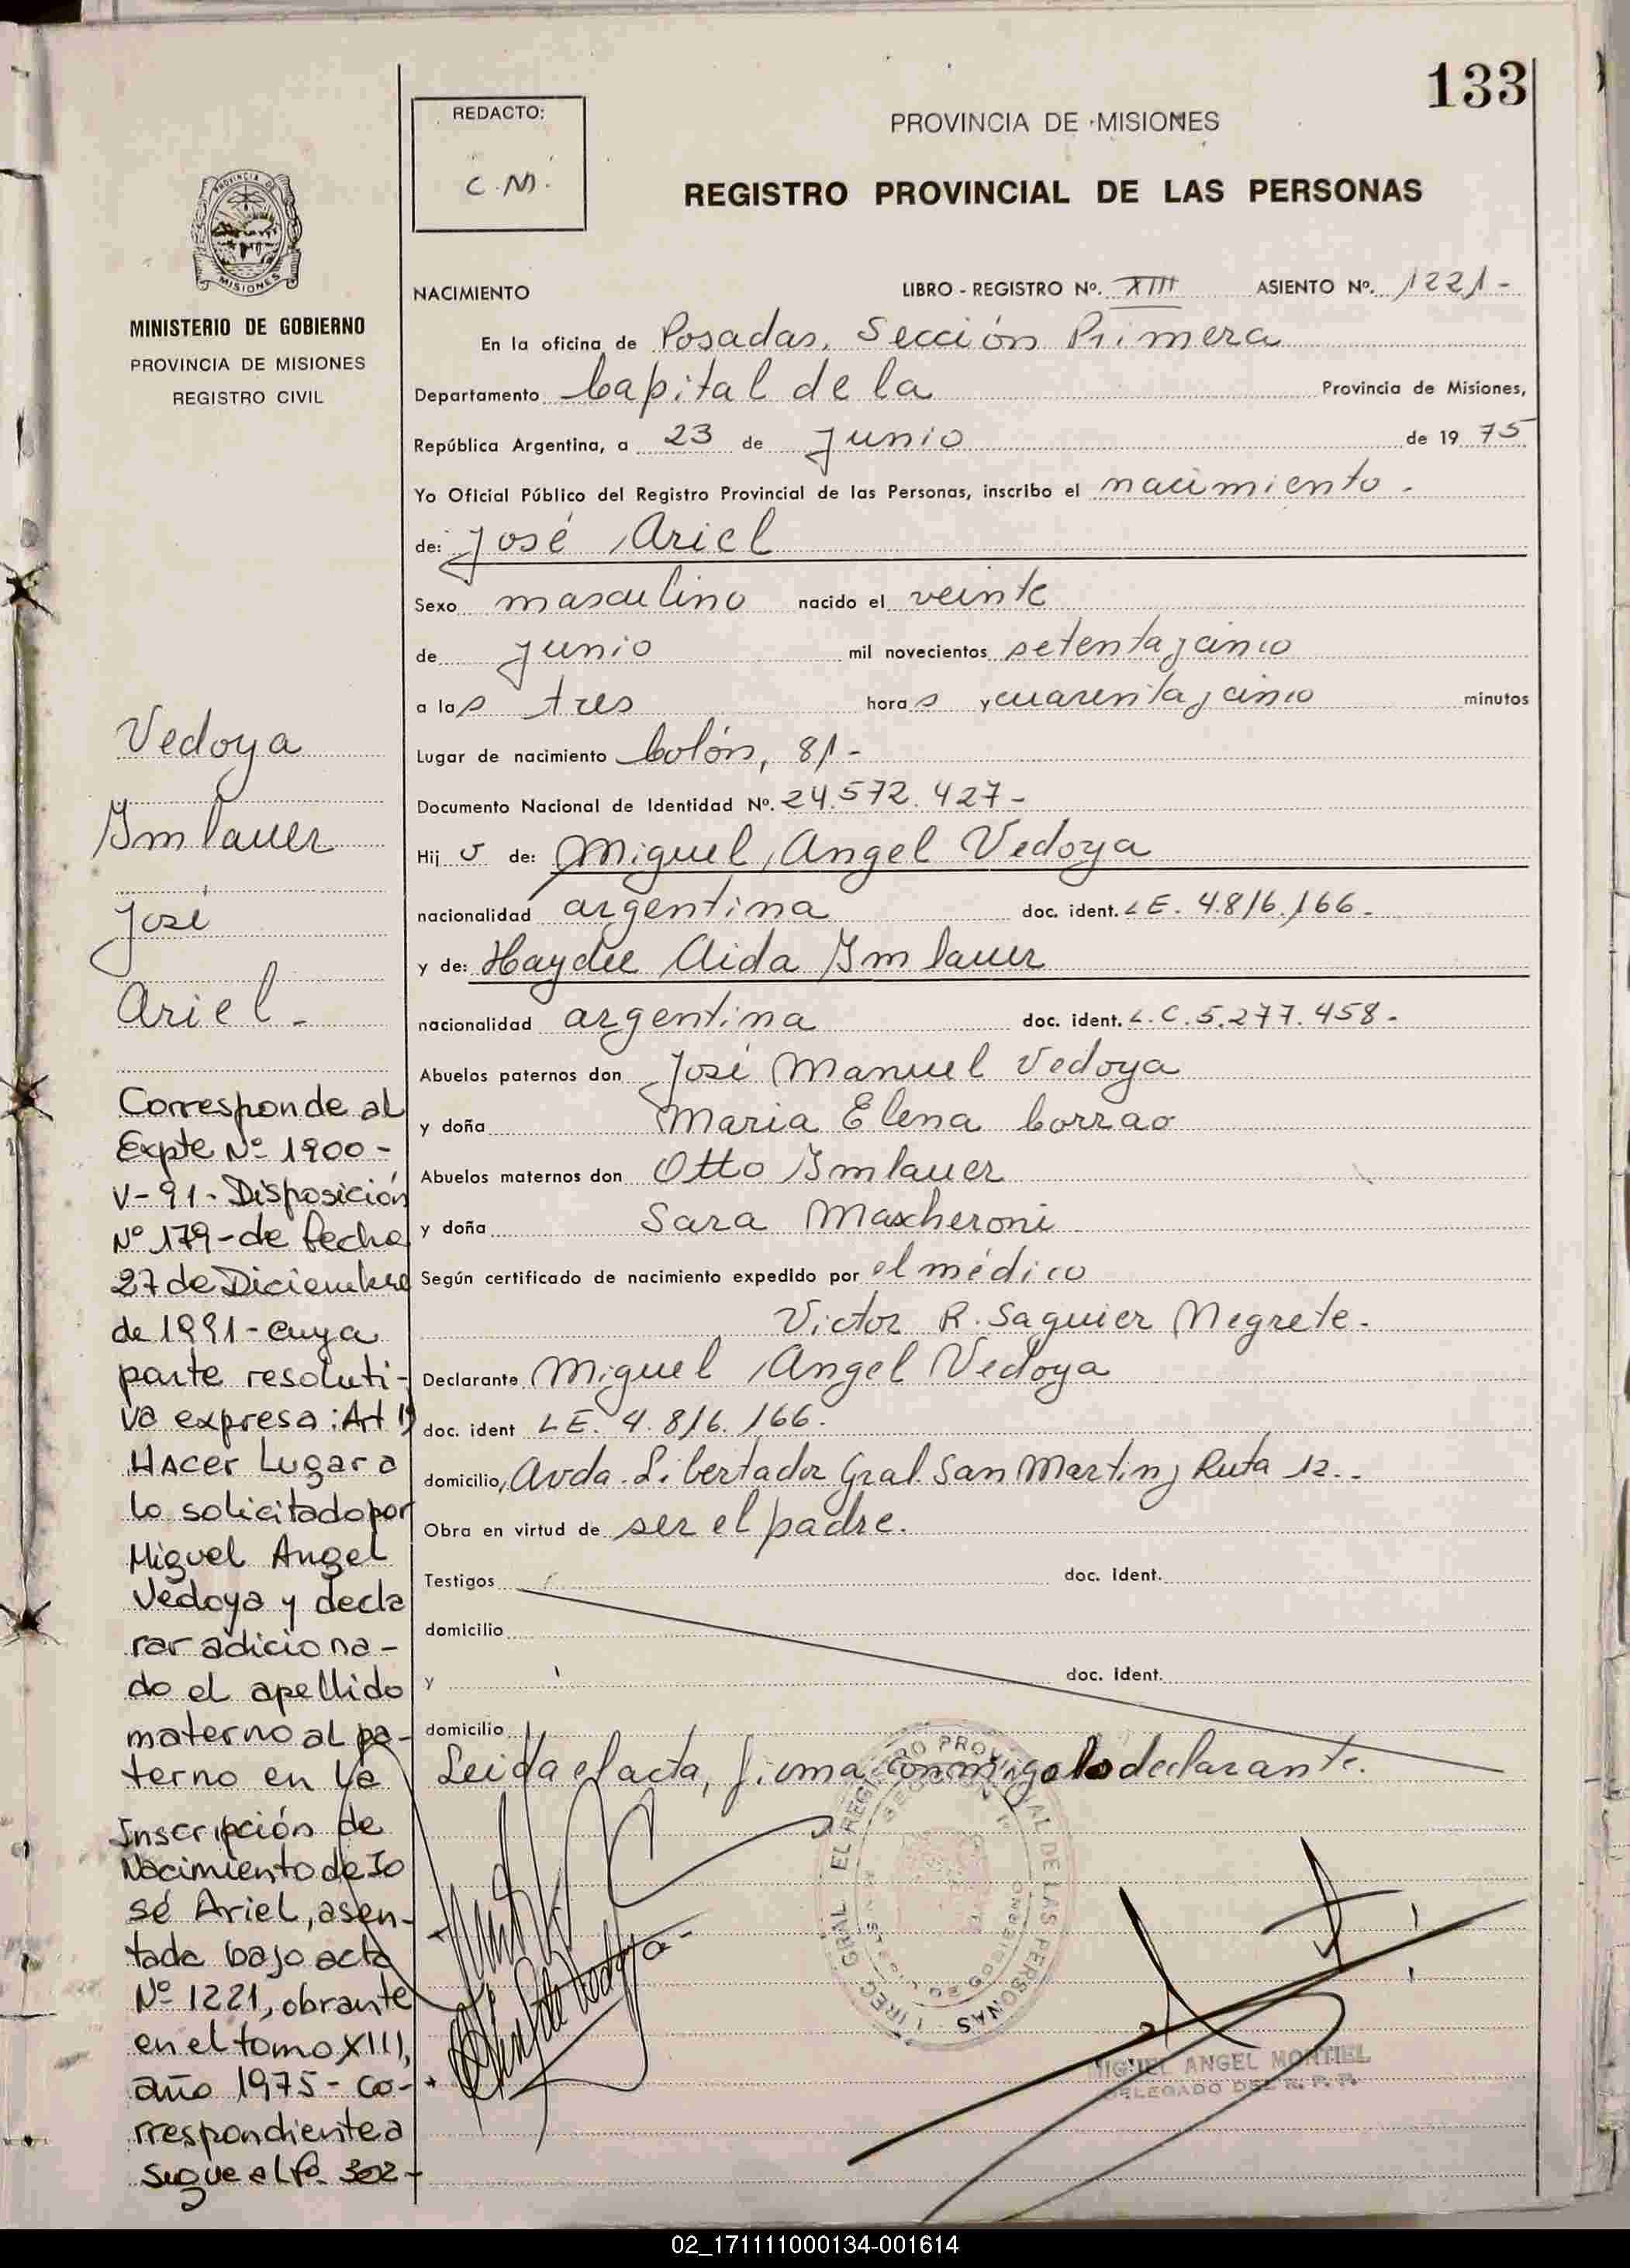 133
REDACTO:
C.M.
PROVINCIA DE MISIONES
REGISTRO PROVINCIAL DE LAS PERSONAS
PROVINCIA DE
MISIONES
MINISTERIO DE GOBIERNO
PROVINCIA DE MISIONES
REGISTRO CIVIL
NACIMIENTO LIBRO - REGISTRO Nº. XIII ASIENTO Nº. 1221-
En la oficina de Posadas, Sección Primera
Departamento Capital de la Provincia de Misiones,
República Argentina, a 23 de Junio de 19 75
Yo Oficial Público del Registro Provincial de las Personas, inscribo el nacimiento.
de: José Ariel
Sexo masculino nacido el veinte
de junio mil novecientos setenta y cinco
a las tres horas y cuarenta y cinco minutos
Lugar de nacimiento Colón, 81-
Documento Nacional de Identidad Nº. 24.572.427-
Hijo de: Miguel Angel Vedoya
nacionalidad argentina doc. ident. LE. 4.816.166.
y de: Haydee Aida Imlauer
nacionalidad argentina doc. ident. L.C. 5.277.458-
Abuelos paternos don José Manuel Vedoya
y doña Maria Elena Corrao
Abuelos maternos don Otto Imlauer
y doña Sara Mascheroni
Según certificado de nacimiento expedido por el médico
Victor R. Saguier Negrete.
Declarante Miguel Angel Vedoya
doc. ident LE. 4.816.166.
domicilio, Avda. Libertador Gral. San Martin y Ruta 12.
Obra en virtud de ser el padre.
Testigos doc. ident.
domicilio
y doc. ident.
domicilio
Leida el acta, firma conmigo lo declarante.
MIGUEL ANGEL MONTIEL
DELEGADO DEL R. P. P.
Vedoya
Imlauer
José
Ariel.
Corresponde al
Expte Nº 1900-
V-91- Disposición
Nº 179-de fecha
27 de Diciembre
de 1991-cuya
parte resoluti-
va expresa: Art 1º
Hacer Lugar a
lo solicitado por
Miguel Angel
Vedoya y decla
rar adiciona-
do el apellido
materno al pa-
terno en la
Inscripción de
Nacimiento de Jo
sé Ariel, asen-
tada bajo acta
Nº 1221, obrante
en el tomo XIII,
año 1975- co-
rrespondiente a
sigue al fº 302-
02_171111000134-001614